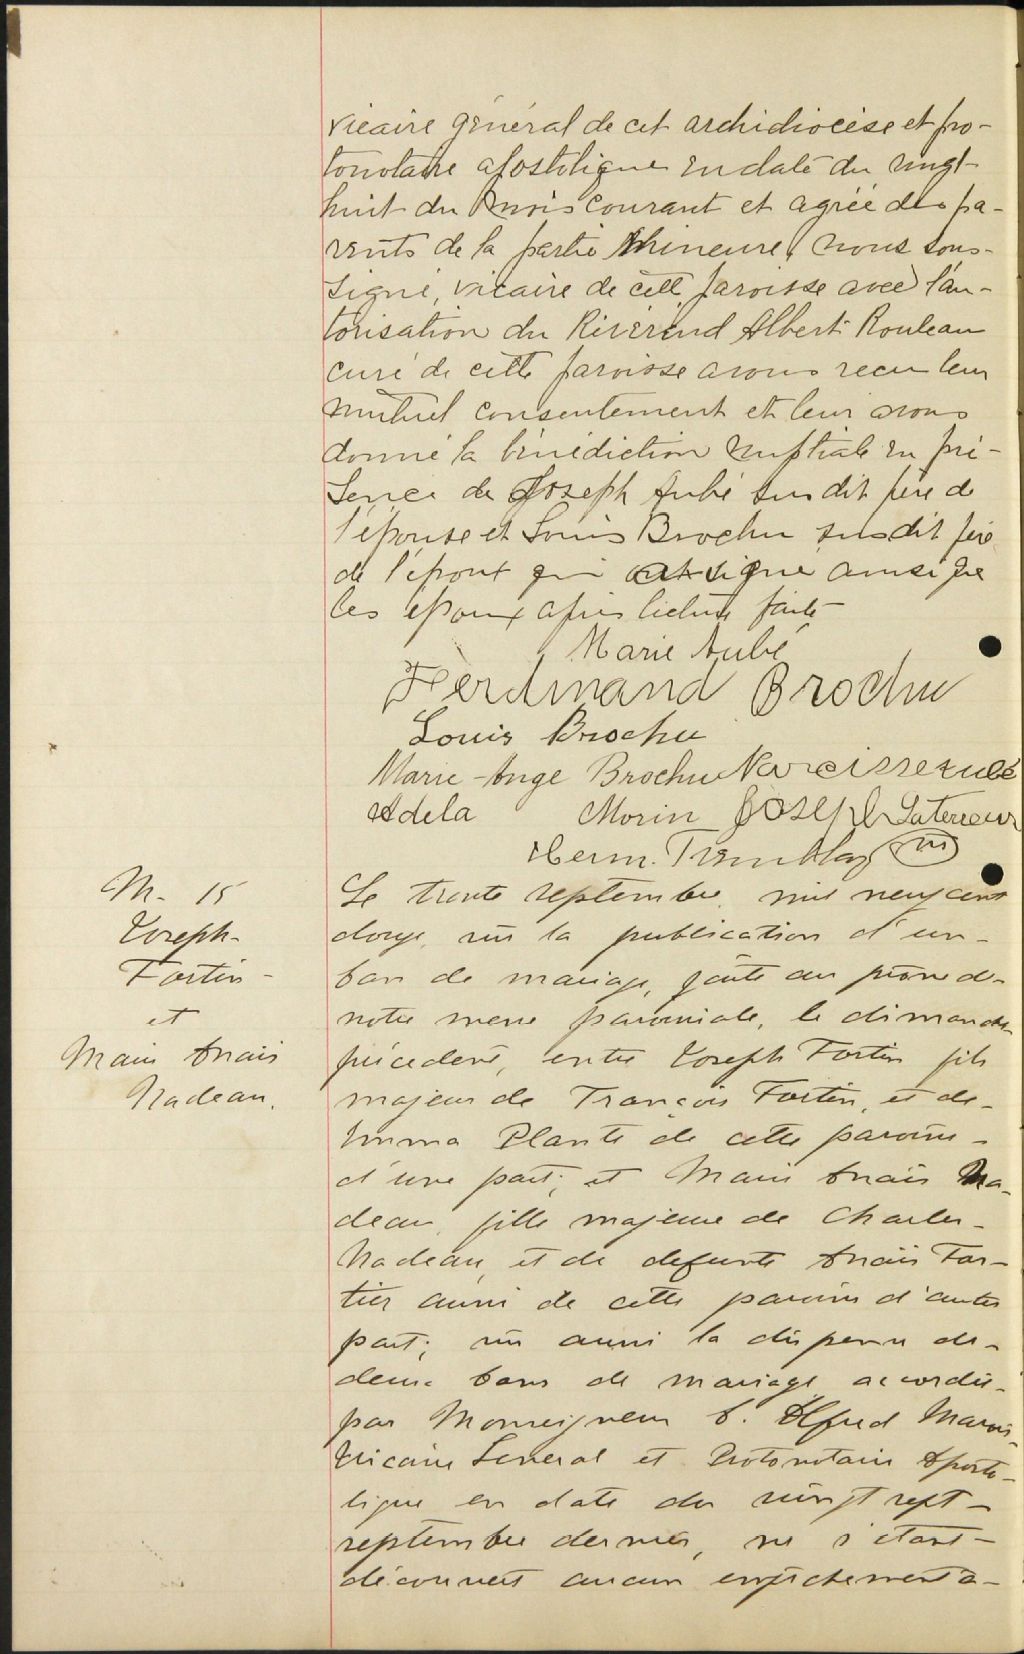 vicaire général de cet archidiocèse et pro-
tonotaire apostolique en date du vingt-
huit du mois courant et agréé des pa-
rents de la partie mineure, nous sous-
signé, vicaire de cette paroisse avec l'au-
torisation du Révérend Albert Rouleau
curé de cette paroisse avons reçu leur
mutuel consentement et leur avons
donné la bénédiction nuptiale en pré-
sence de Joseph Aubé susdit père de
l'épouse et Louis Brochu susdit père
de l'époux qui ont signé ainsi que
les époux après lecture faite
Marie Aubé
Ferdinand Brochu
Louis Brochu
Marie-Ange Brochu Narcisse Aubé
Adela Morin Joseph
Herm. Tremblay
M. 15
Joseph
Fortin
et
Marie Anaïs
Nadeau.
Le trente septembre mil neuf cent
douze, vu la publication d'un
ban de mariage, faite au prône de
notre messe paroissiale, le dimanche
précédent, entre Joseph Fortin fils
majeur de François Fortin, et de
Emma Plante de cette paroisse
d'une part; et Marie Anaïs Na-
deau, fille majeure de Charles
Nadeau, et de défunte Anaïs For-
tier aussi de cette paroisse d'autre
part; vu aussi la dispense de
deux bans de mariage accordée
par Monseigneur C. Alfred Marois
Vicaire Général et Protonotaire Aposto-
lique en date du vingt sept
septembre dernier, ne s'étant
découvert aucun empêchement à